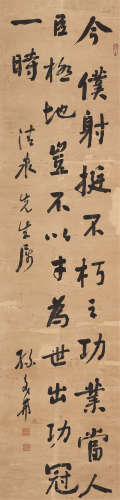 今僕射挺不朽之功業當人
臣極地豈不以才為世出功冠
一時
先生屬
孫